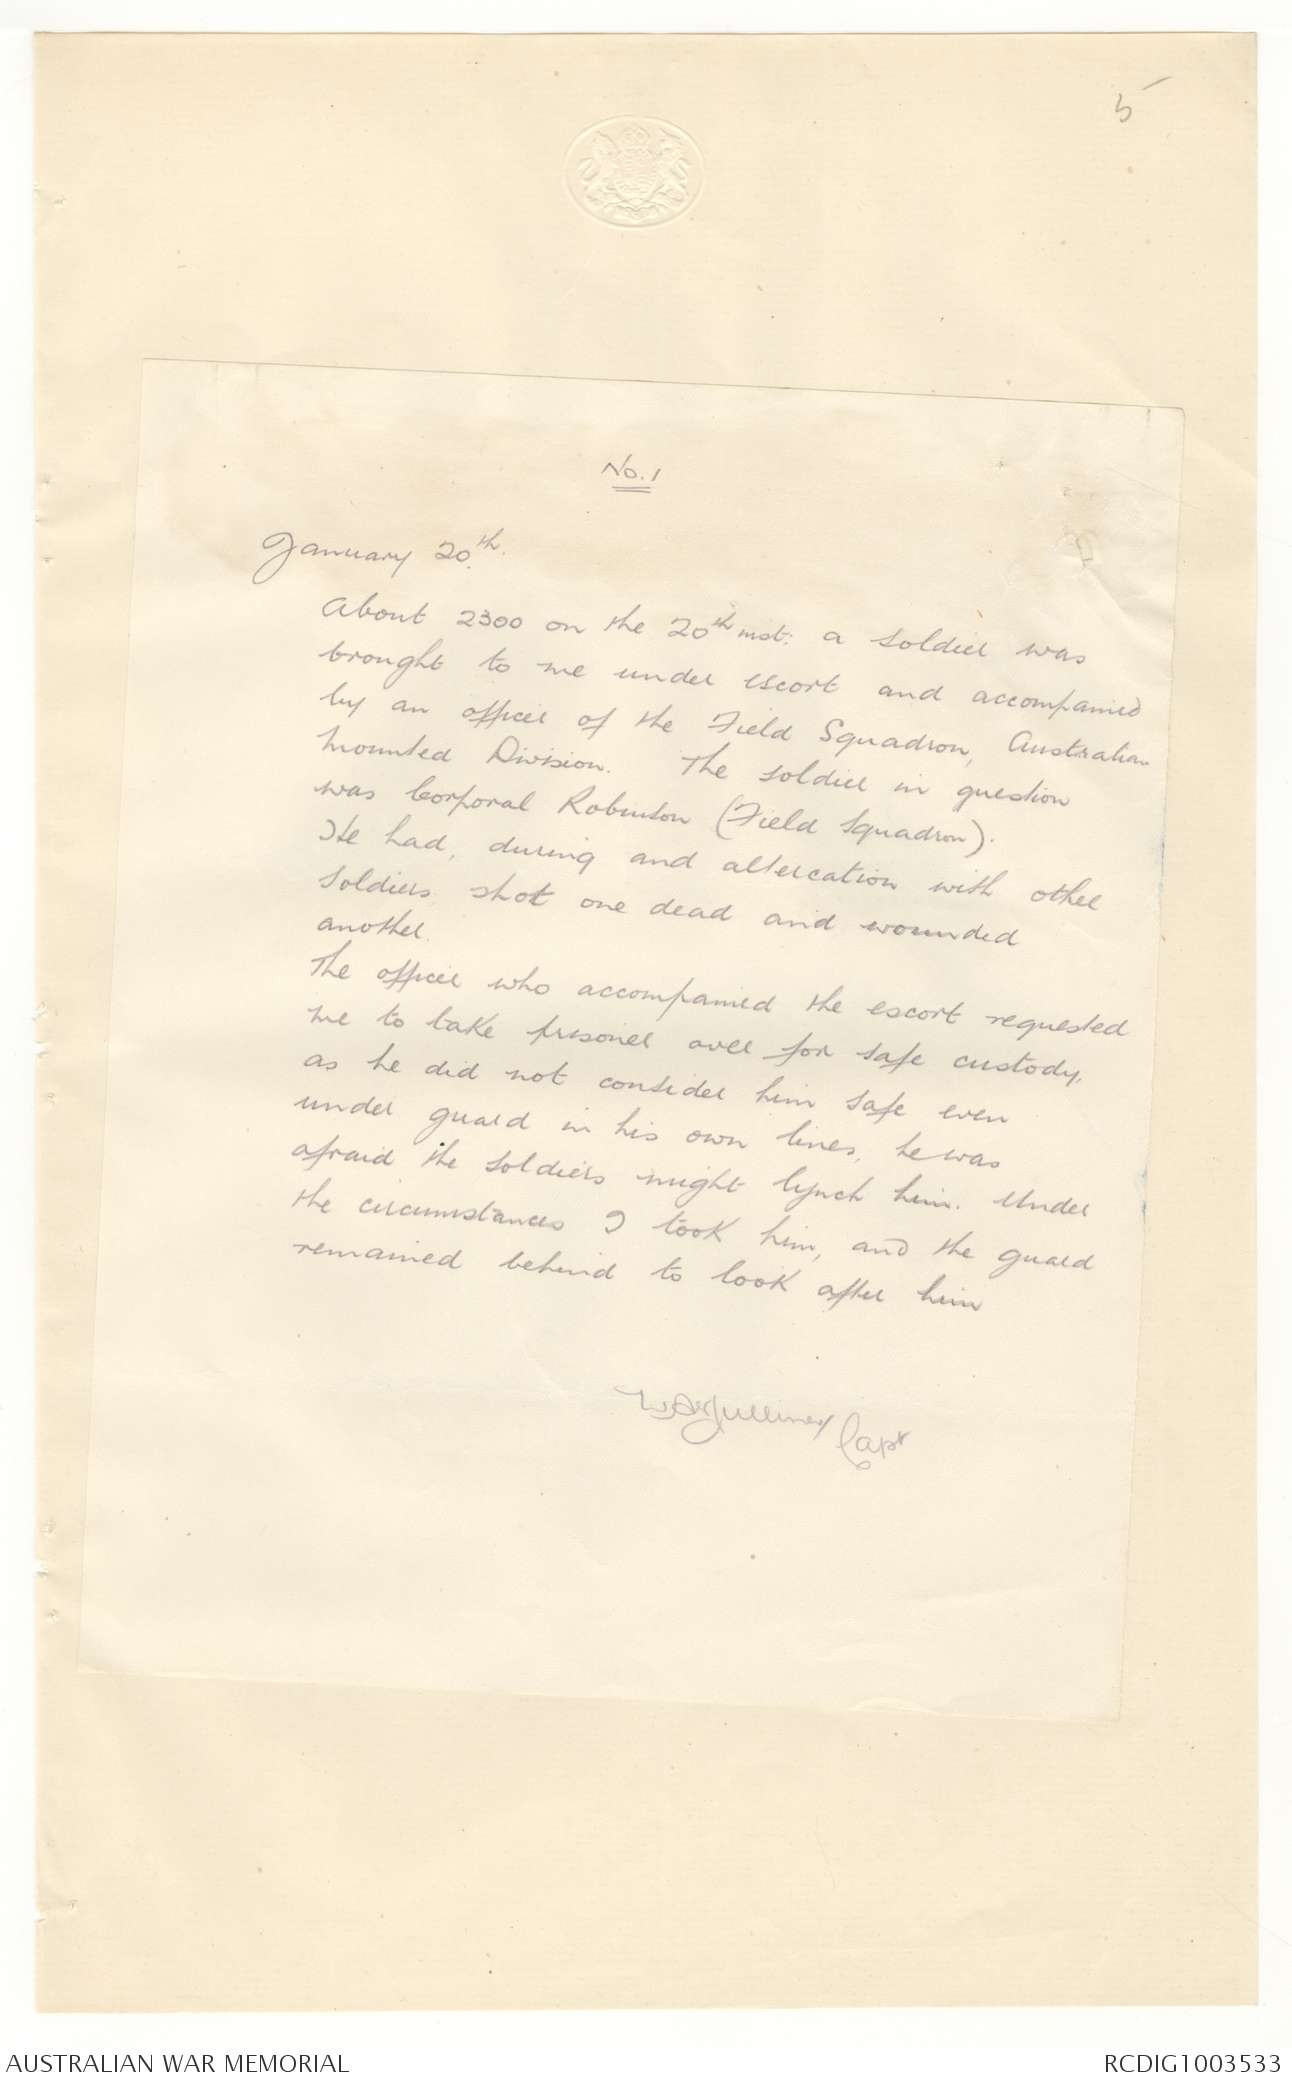 5
No. 1
January 20th.
About 2300 on the 20th inst: a soldier was
brought to me under escort and accompanied
by an officer of the Field Squadron, Australian
Mounted Division. The soldier in question
was Corporal Robinson (Field Squadron).
He had, during and altercation with other
soldiers shot one dead and wounded
another.
The officer who accompanied the escort requested
me to take prisoner over for safe custody,
as he did not consider him safe even
under guard in his own lines, he was
afraid the soldiers might lynch him. Under
the circumstances I took him, and the guard
remained behind to look after him
Capt
AUSTRALIAN WAR MEMORIAL
RCDIG1003533